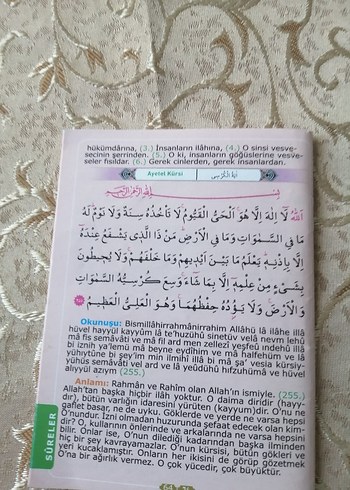 hükümdârına, (3.) İnsanların ilâhına, (4.) O sinsi vesve-
secinin şerrinden. (5.) O ki, insanların göğüslerine vesve-
seler fısıldar. (6.) Gerek cinlerden, gerek insanlardan.
Ayetel Kürsi آية الكرسي
بِسْمِ اللّٰهِ الرَّحْمٰنِ الرَّحِيمِ
اَللّٰهُ لَٓا اِلٰهَ اِلَّا هُوَ اَلْحَيُّ الْقَيُّومُ لَا تَأْخُذُهُ سِنَةٌ وَلَا نَوْمٌ لَهُ
مَا فِي السَّمٰوَاتِ وَمَا فِي الْاَرْضِ مَنْ ذَا الَّذِي يَشْفَعُ عِنْدَهُٓ
اِلَّا بِاِذْنِهِ يَعْلَمُ مَا بَيْنَ اَيْدِيهِمْ وَمَا خَلْفَهُمْ وَلَا يُحِيطُونَ
بِشَيْءٍ مِنْ عِلْمِهِٓ اِلَّا بِمَا شَٓاءَ وَسِعَ كُرْسِيُّهُ السَّمٰوَاتِ
وَالْاَرْضَ وَلَا يَؤُدُهُ حِفْظُهُمَا وَهُوَ الْعَلِيُّ الْعَظِيمُ
Okunuşu: Bismillâhirrahmânirrahim Allâhü lâ ilâhe illâ
hüvel hayyül kayyûm lâ te'huzühû sinetüv velâ nevm lehû
mâ fis semâvâti ve mâ fil ard men zellezî yeşfeû ındehû illâ
bi iznih ya'lemü mâ beyne eydîhim ve mâ halfehüm ve lâ
yühıytûne bi şey'im min ılmihî illâ bi mâ şa' vesia kürsiy-
yühüs semâvâti vel ard ve lâ yeûdühû hıfzuhümâ ve hüvel
alıyyül azıym (255.)
Anlamı: Rahmân ve Rahîm olan Allah'ın ismiyle. (255.)
Allah'tan başka hiçbir ilâh yoktur. O daima diridir (hayy-
dır), bütün varlığın idaresini yürüten (kayyum)dir. O'nu ne
gaflet basar, ne de uyku. Göklerde ve yerde ne varsa hepsi
O'nundur. İzni olmadan huzurunda şefaat edecek olan kim-
dir? O, kullarının önlerinde ve arkalarında ne varsa hepsini
bilir. Onlar ise, O'nun dilediği kadarından başka ilminden
hiç bir şey kavrayamazlar. O'nun kürsisi, bütün gökleri ve
yeri kucaklamıştır. Onların her ikisini de görüp gözetmek
O'na bir ağırlık vermez. O çok yücedir, çok büyüktür.
SÛRELER